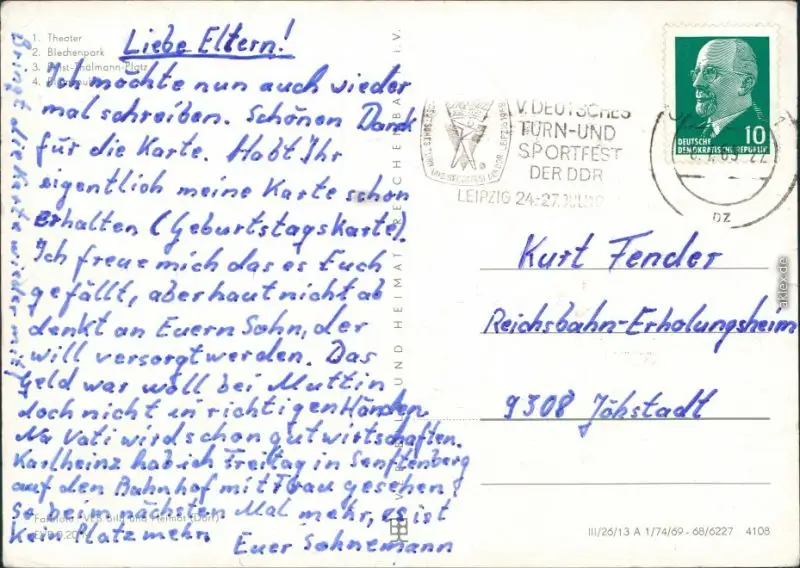 1. Theater
2. Blechenpark
3. Ernst-Thälmann-Platz
4.
Liebe Eltern!
Ich möchte nun auch wieder
mal schreiben. Schönen Dank
für die Karte. Habt Ihr
eigentlich meine Karte schon
erhalten (Geburtstagskarte).
Ich freue mich das es Euch
gefällt, aber haut nicht ab
denkt an Euern Sohn, der
will versorgt werden. Das
Geld war woll bei Muttin
doch nicht in richtigen Händen
Na Vati wird schon gut wirtschaften.
Karlheinz hab ich Freitag in Senftenberg
auf den Bahnhof mit Frau gesehen,
so beim nächsten Mal mehr, es ist
kein Platz mehr.
Euer Sohnemann
Bringt die Karte wieder mit
VEB BILD UND HEIMAT REICHENBACH I. V.
Farbfoto: VEB Bild und Heimat (Dörr)
EVP 0,20
V. DEUTSCHES
TURN-UND
SPORTFEST
DER DDR
LEIPZIG 24.-27. JULI
10
DEUTSCHE
DEMOKRATISCHE REPUBLIK
Kurt Fender
Reichsbahn-Erholungsheim
9308 Jöhstadt
III/26/13 A 1/74/69 - 68/6227 4108
aklex.de